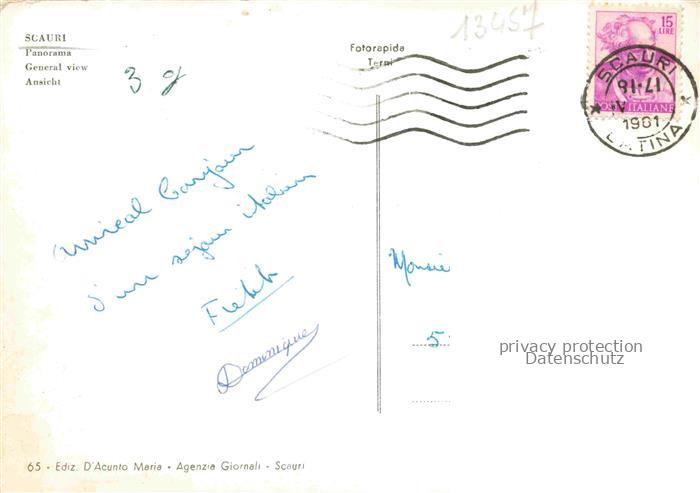 SCAURI
Panorama
General view
Ansicht
13457
Fotorapida
Terni
15
LIRE
POSTE ITALIANE
SCAURI
17-18
1961
LATINA
3 g
amical bonjour
d'un séjour italien
Dominique
Monsie
5
privacy protection
Datenschutz
65 - Ediz. D'Acunto Maria - Agenzia Giornali - Scauri